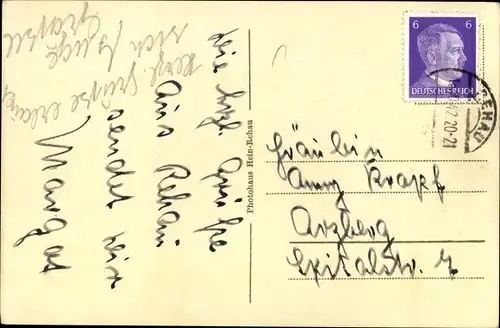 Die herzl. Grüße
aus Rehau
sendet Dir
Margot
Photohaus Hein-Rehau
6 6
DEUTSCHES REICH
REHAU
42.20-21
Fräulein
Anny Krapf
Arzberg
Spitalstr. 7